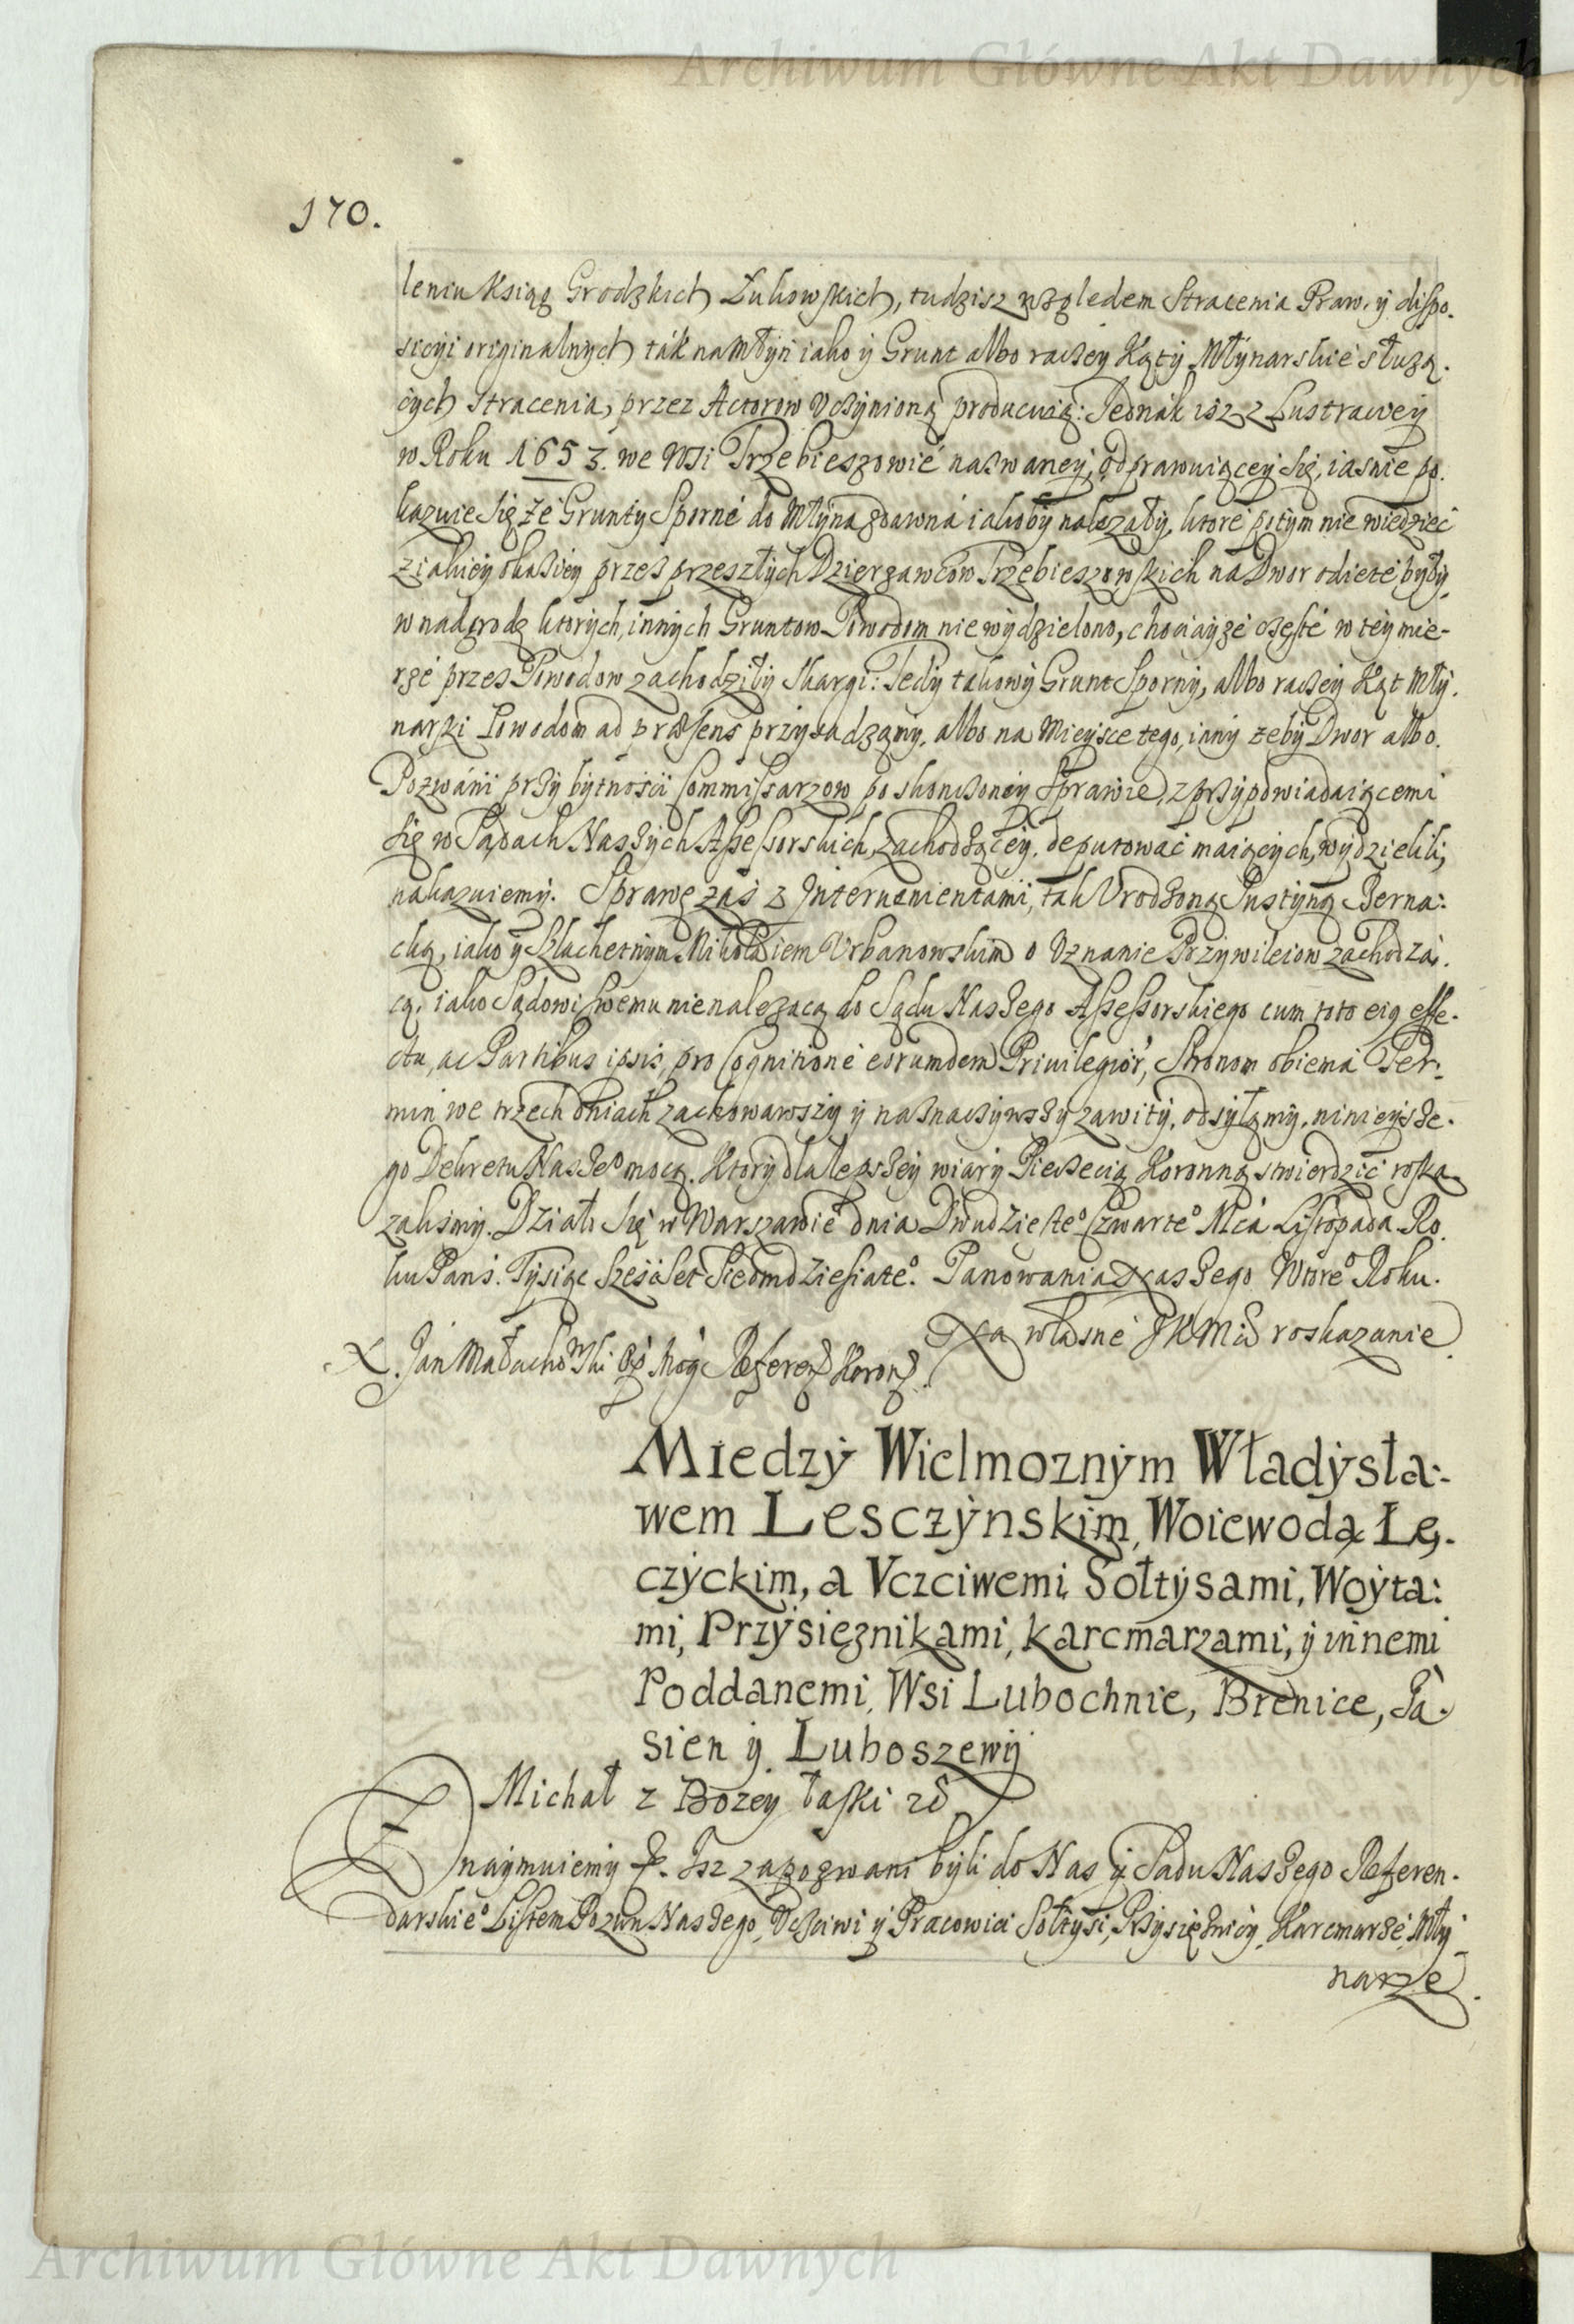 Archiwum Główne Akt Dawnych
170.
leniu Ksiąg Grodzkich Łukowskich, tudzisz względem Stracenia Praw, y dispo-
sicyi originalnych ták na Młyn iako y Grunt albo raczey Kąty Młynarskie służą-
cych stracenia, przez Actorow Vczynioną producuią: Jednák isz z Lustracyey
w Roku 1653. we Wsi Trzebieszowie názwaney, odprawuiącey się, iasnie po-
kazuie się że Grunty Sporne do Młyna zdawna iakoby należały, ktore potym nie wiedzieć
z iakiey okaziey przez przeszłych Dzierzawcow Trzebieszowskich na Dwor odięte były,
w nadgrodę ktorych, innych Gruntow Powodom nie wydzielono, chociayże częste w tey mie-
rze przez Powodow zachodziły skargi: Tedy takowy Grunt Sporny, albo raczey Kąt Mły-
narski Powodom ad præsens przysadzamy, albo na Mieysce tego, inny żeby Dwor albo
Pozwáni przy bytnosci Commissarzow po skonczoney Sprawie, z przypowiadaiącemi
się w Sądach Naszych Assessorskich, zachodzącey, deputować maiących, wydzielili,
nakazuiemy. Sprawę zaś z Interuenientami, tak Vrodzoną Justyną Berna:
cką, iako y Szlachetnym Mikołaiem Vrbanowskim o Vznanie Przywileiow zachodzą-
cą, iako Sądowi swemu nienależącą do Sądu Naszego Assessorskiego cum toto eig effe-
ctu, ac Partibus ipsis, pro Cognitione eorumdem Priuilegior, Stronom obiema Ter-
min we trzech dniach zachowawszy y naznaczywszy zawity, odsyłamy, ninieysze-
go Dekretu Nasze° mocą. Ktory dla lepszey wiary Pieczecią Koronną stwierdzić roska-
zalismy. Działo się w Warszawie dnia Dwudzieste° Czwarte° Mca Listopada Ro-
ku Pans. Tysiąc Sześćset Siedmdziesiate°. Panowania Naszego Wtore° Roku.
X. Jan Małachowski Refer Koron
Na własne JKMci roskazanie
Miedzy Wielmoznym Władysła:
wem Lesczynskim, Woiewodą Łę-
czyckim, a Vczciwemi Sołtysami, Woyta:
mi, Przysięznikami, karcmarzami, y innemi
Poddanemi, Wsi Lubochnie, Brenice, Ja-
sien y Luboszewy
Michał z Bozey łaski
Znaymuiemy Isz zapozwani byli do Nas y Sadu Naszego Referen-
darskie° Listem Pozwu Naszego, Vczciwi y Pracowici Sołtysi, Przysięźnicy, Karcmarze, Mły-
narze
Archiwum Główne Akt Dawnych